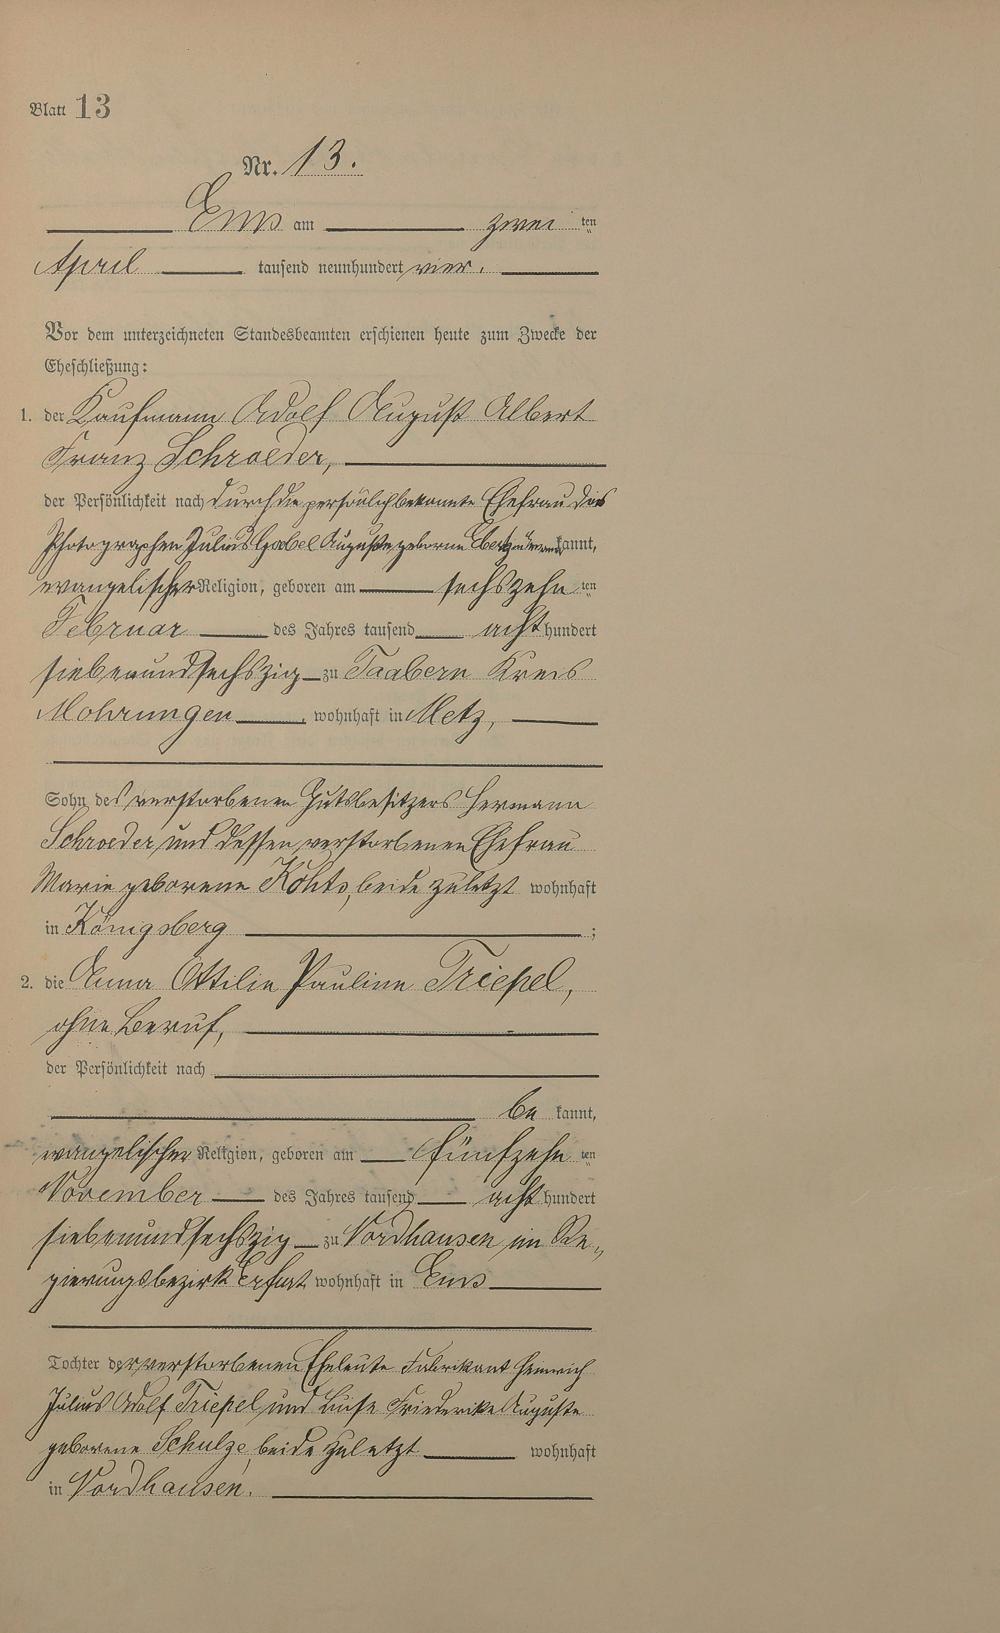 Blatt 13
Nr. 13.
Ems am zwei ten
April tausend neunhundert vier.
Vor dem unterzeichneten Standesbeamten erschienen heute zum Zwecke der
Eheschließung:
1. der Kaufmann Adolf August Albert
Franz Schroeder,
der Persönlichkeit nach durch die persönlich bekannte Ehefrau des
Photographen Julius Goebel Auguste geborene kannt,
evangelischer Religion, geboren am sechszehn ten
Februar des Jahres tausend acht hundert
siebenundsechszig zu Taabern Kreis
Mohrungen, wohnhaft in Metz,
Sohn des verstorbenen Gutsbesitzers Hermann
Schroeder und dessen verstorbenen Ehefrau
Marie geborene Kohts, beide zuletzt wohnhaft
in Königsberg ;
2. die Anna Ottilie Pauline Triepel,
ohne Beruf,
der Persönlichkeit nach
be kannt,
evangelischer Religion, geboren am fünfzehn ten
November des Jahres tausend acht hundert
siebenundsechszig zu Nordhausen im Re„
gierungsbezirk Erfurt wohnhaft in Ems
Tochter der verstorbenen Eheleute Fabrikant Heinrich
Julius Adolf Triepel und Luise Friederike Auguste
geborene Schulze, beide zuletzt wohnhaft
in Nordhausen.